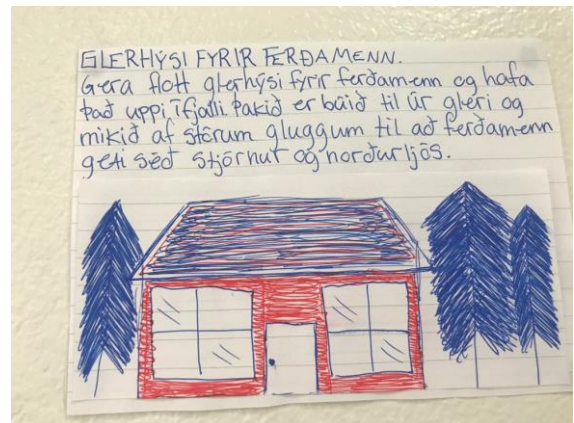 GLERHÝSI FYRIR FERÐAMENN.
Gera flott glerhýsi fyrir ferðamenn og hafa
það uppi í fjalli. Þakið er búið til úr gleri og
mikið af stórum gluggum til að ferðamenn
geti séð stjörnur og norðurljós.